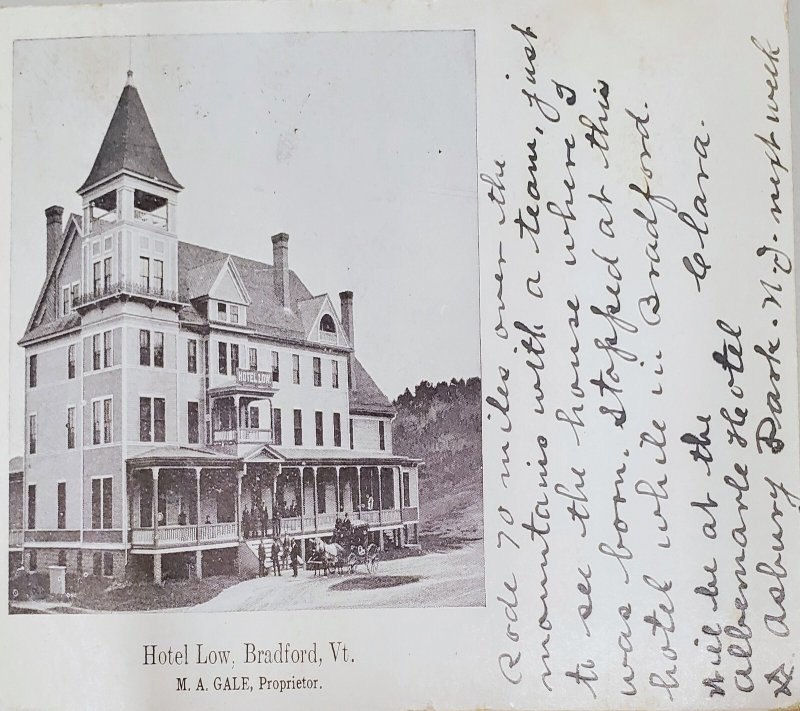 HOTEL LOW
Hotel Low, Bradford, Vt.
M. A. GALE, Proprietor.
Rode 70 miles over the
mountains with a team, just
to see the house where I
was born. Stopped at this
hotel while in Bradford.
Clara.
Will be at the
Albemarle Hotel
Asbury Park. N.J. next week